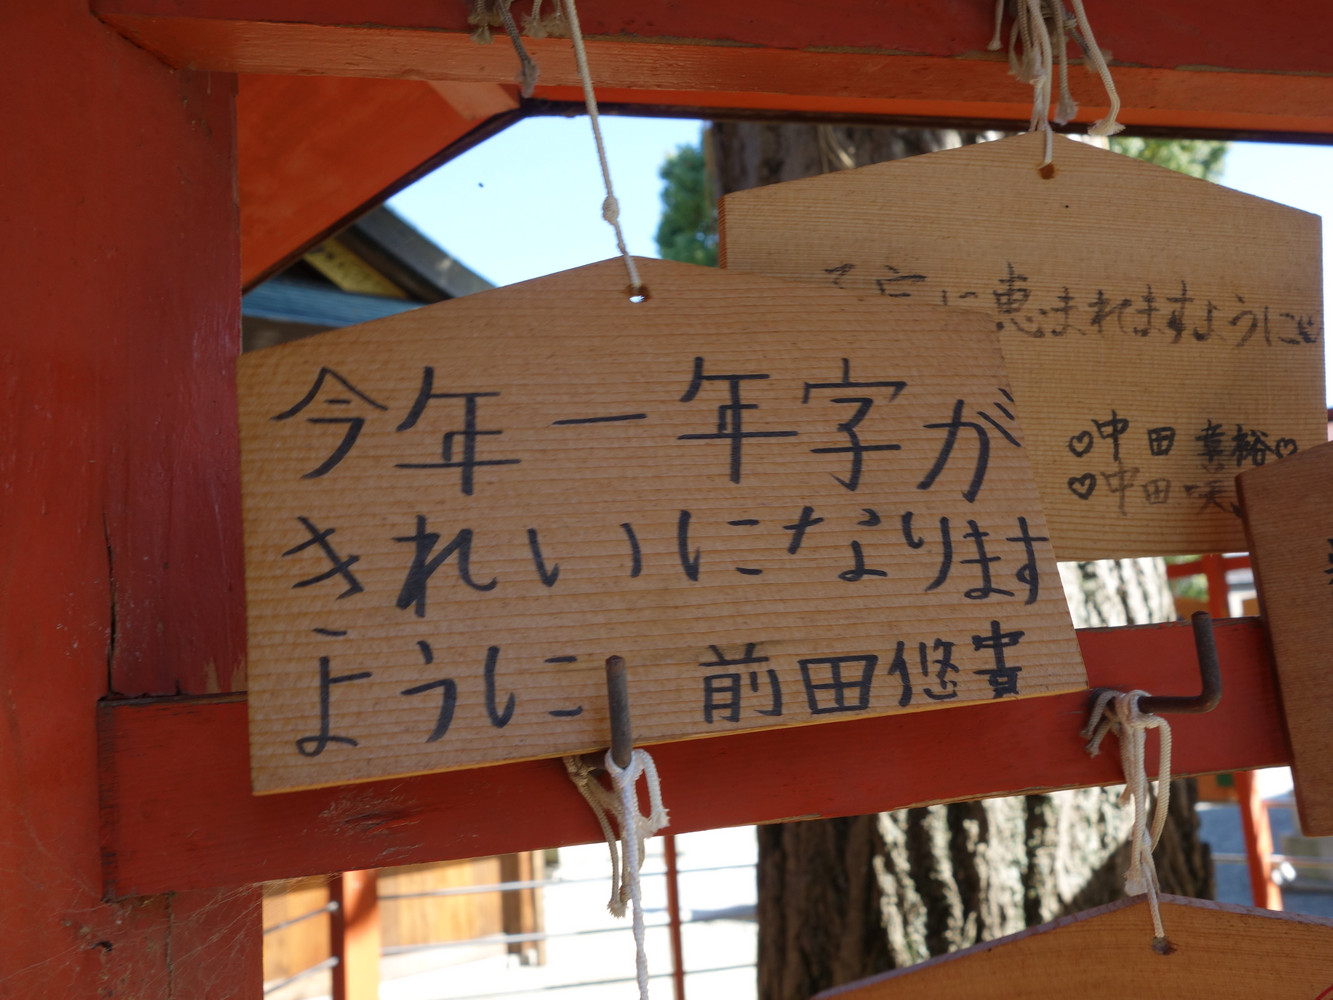 今年一年字が
きれいになります
ように 前田悠貴
恵まれますように
♡中田 幸裕♡
♡中田